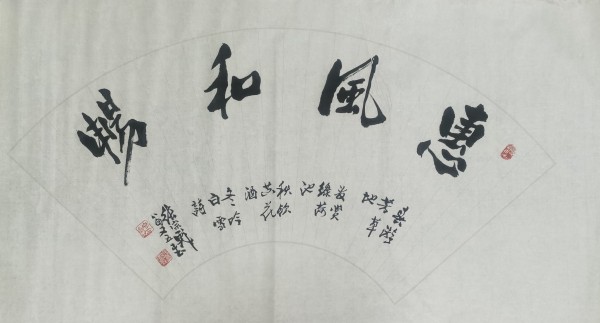 惠風和暢
春遊
芳草
地
夏賞
綠荷
池
秋飲
黃花
酒
冬吟
白雪
詩